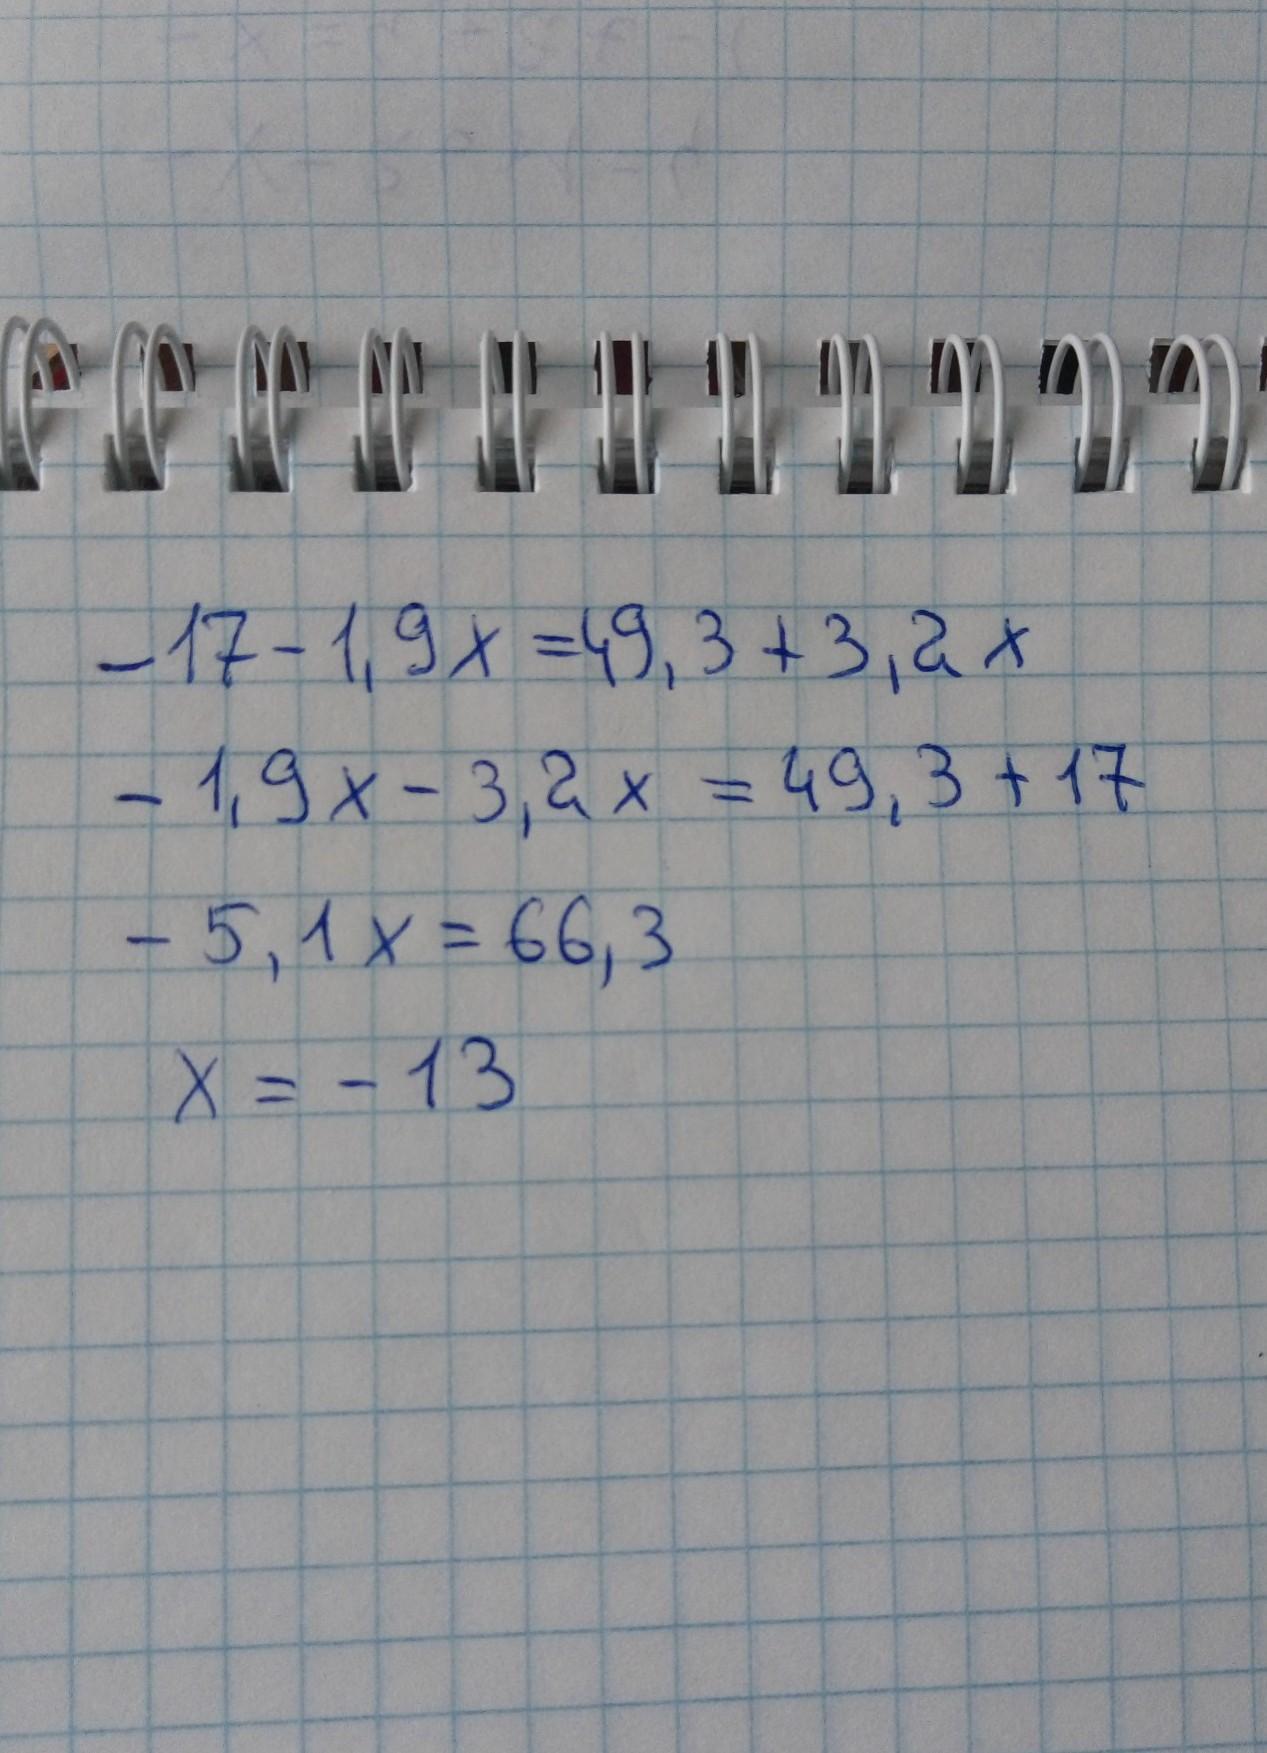 -17-1,9x=49,3+3,2x
-1,9x-3,2x=49,3+17
-5,1x=66,3
x=-13